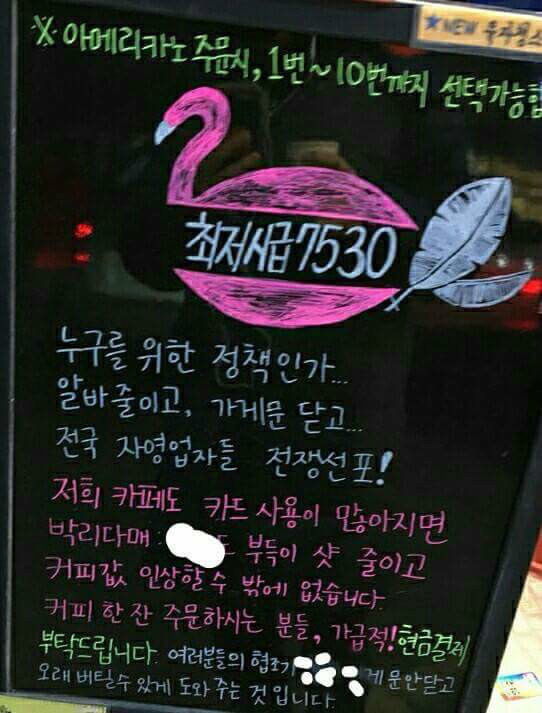 ★NEW
※ 아메리카노 주문시, 1번~10번까지 선택가능합
최저시급7530
누구를 위한 정책인가...
알바줄이고, 가게문 닫고...
전국 자영업자들 전쟁선포!
저희 카페도 카드 사용이 많아지면
박리다매 도 부득이 샷 줄이고
커피값 인상할 수 밖에 없습니다.
커피 한 잔 주문하시는 분들, 가급적! 현금결제
부탁드립니다. 여러분들의 협조가 게 문안닫고
오래 버틸수 있게 도와 주는 것 입니다.